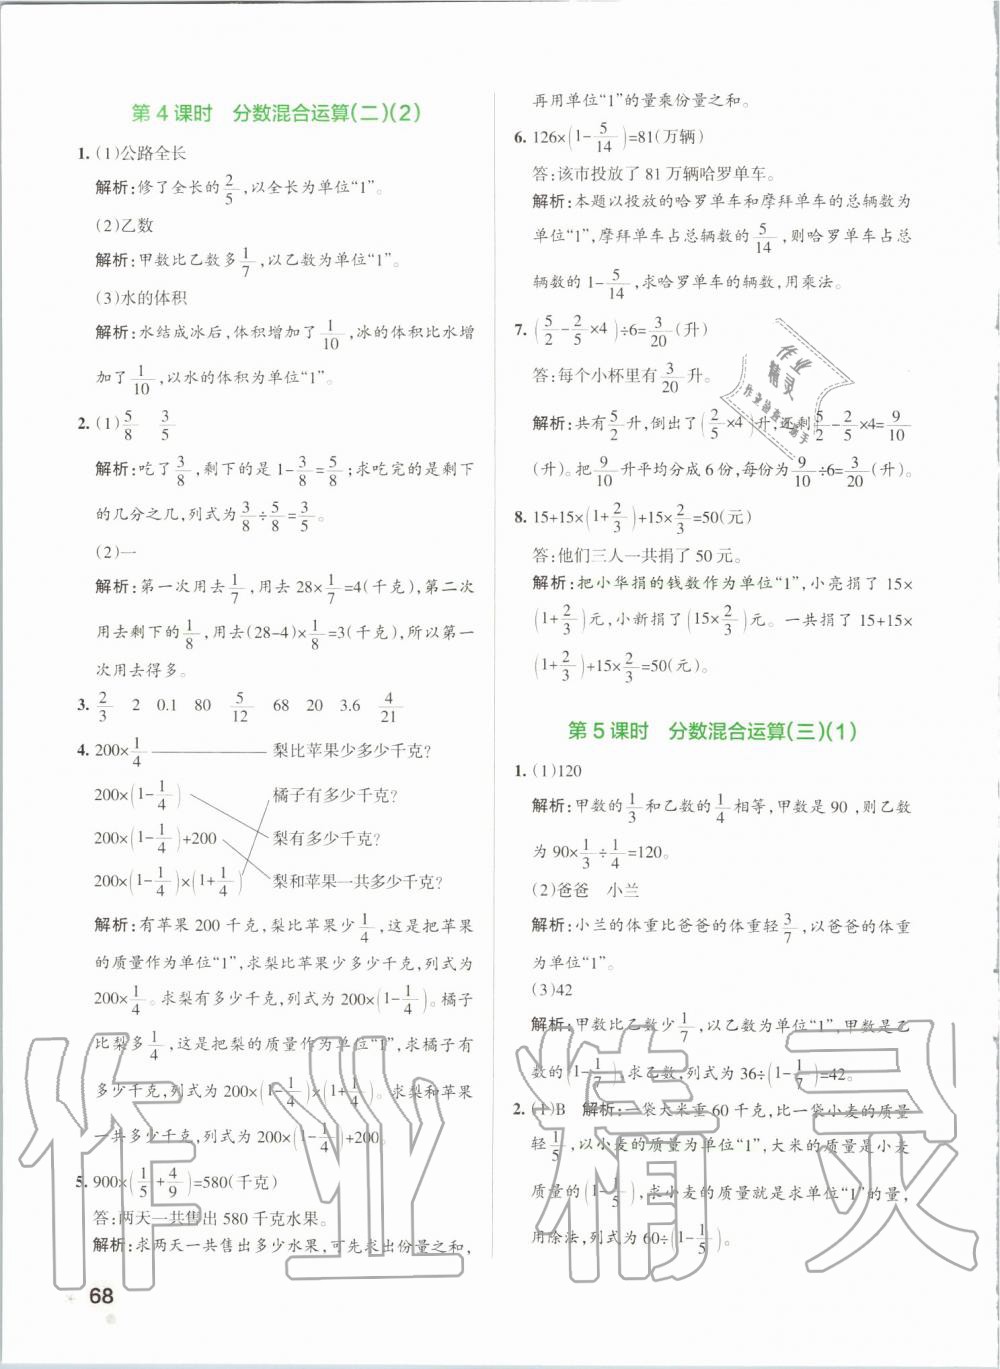 第4课时　分数混合运算(二)(2)
1. (1)公路全长
解析:修了全长的2/5,以全长为单位“1”。
(2)乙数
解析:甲数比乙数多1/7,以乙数为单位“1”。
(3)水的体积
解析:水结成冰后,体积增加了1/10,冰的体积比水增
加了1/10,以水的体积为单位“1”。
2. (1)5/8　3/5
解析:吃了3/8,剩下的是1-3/8=5/8;求吃完的是剩下
的几分之几,列式为3/8÷5/8=3/5。
(2)一
解析:第一次用去1/7,用去28×1/7=4(千克),第二次
用去剩下的1/8,用去(28-4)×1/8=3(千克),所以第一
次用去得多。
3. 2/3　2　0.1　80　5/12　68　20　3.6　4/21
4. 200×1/4　梨比苹果少多少千克?
200×(1-1/4)　橘子有多少千克?
200×(1-1/4)+200　梨有多少千克?
200×(1-1/4)×(1+1/4)　梨和苹果一共多少千克?
解析:有苹果200千克,梨比苹果少1/4,这是把苹果
的质量作为单位“1”,求梨比苹果少多少千克,列式为
200×1/4。求梨有多少千克,列式为200×(1-1/4)。橘子
比梨多1/4,这是把梨的质量作为单位“1”,求橘子有
多少千克,列式为200×(1-1/4)×(1+1/4)。求梨和苹果
一共多少千克,列式为200×(1-1/4)+200。
5. 900×(1/5+4/9)=580(千克)
答:两天一共售出580千克水果。
解析:求两天一共售出多少水果,可先求出份量之和,
68
再用单位“1”的量乘份量之和。
6. 126×(1-5/14)=81(万辆)
答:该市投放了81万辆哈罗单车。
解析:本题以投放的哈罗单车和摩拜单车的总辆数为
单位“1”,摩拜单车占总辆数的5/14,则哈罗单车占总
辆数的1-5/14,求哈罗单车的辆数,用乘法。
7. (5/2-2/5×4)÷6=3/20(升)
答:每个小杯里有3/20升。
解析:共有5/2升,倒出了(2/5×4)升,还剩5/2-2/5×4=9/10
(升)。把9/10升平均分成6份,每份为9/10÷6=3/20(升)。
8. 15+15×(1+2/3)+15×2/3=50(元)
答:他们三人一共捐了50元。
解析:把小华捐的钱数作为单位“1”,小亮捐了15×
(1+2/3)元,小新捐了(15×2/3)元。一共捐了15+15×
(1+2/3)+15×2/3=50(元)。
第5课时　分数混合运算(三)(1)
1. (1)120
解析:甲数的1/3和乙数的1/4相等,甲数是90,则乙数
为90×1/3÷1/4=120。
(2)爸爸　小兰
解析:小兰的体重比爸爸的体重轻3/7,以爸爸的体重
为单位“1”。
(3)42
解析:甲数比乙数少1/7,以乙数为单位“1”,甲数是乙
数的(1-1/7),求乙数,列式为36÷(1-1/7)=42。
2. (1)B　解析:一袋大米重60千克,比一袋小麦的质量
轻1/5,以小麦的质量为单位“1”,大米的质量是小麦
质量的(1-1/5),求小麦的质量就是求单位“1”的量,
用除法,列式为60÷(1-1/5)。
作业精灵
作业
精灵